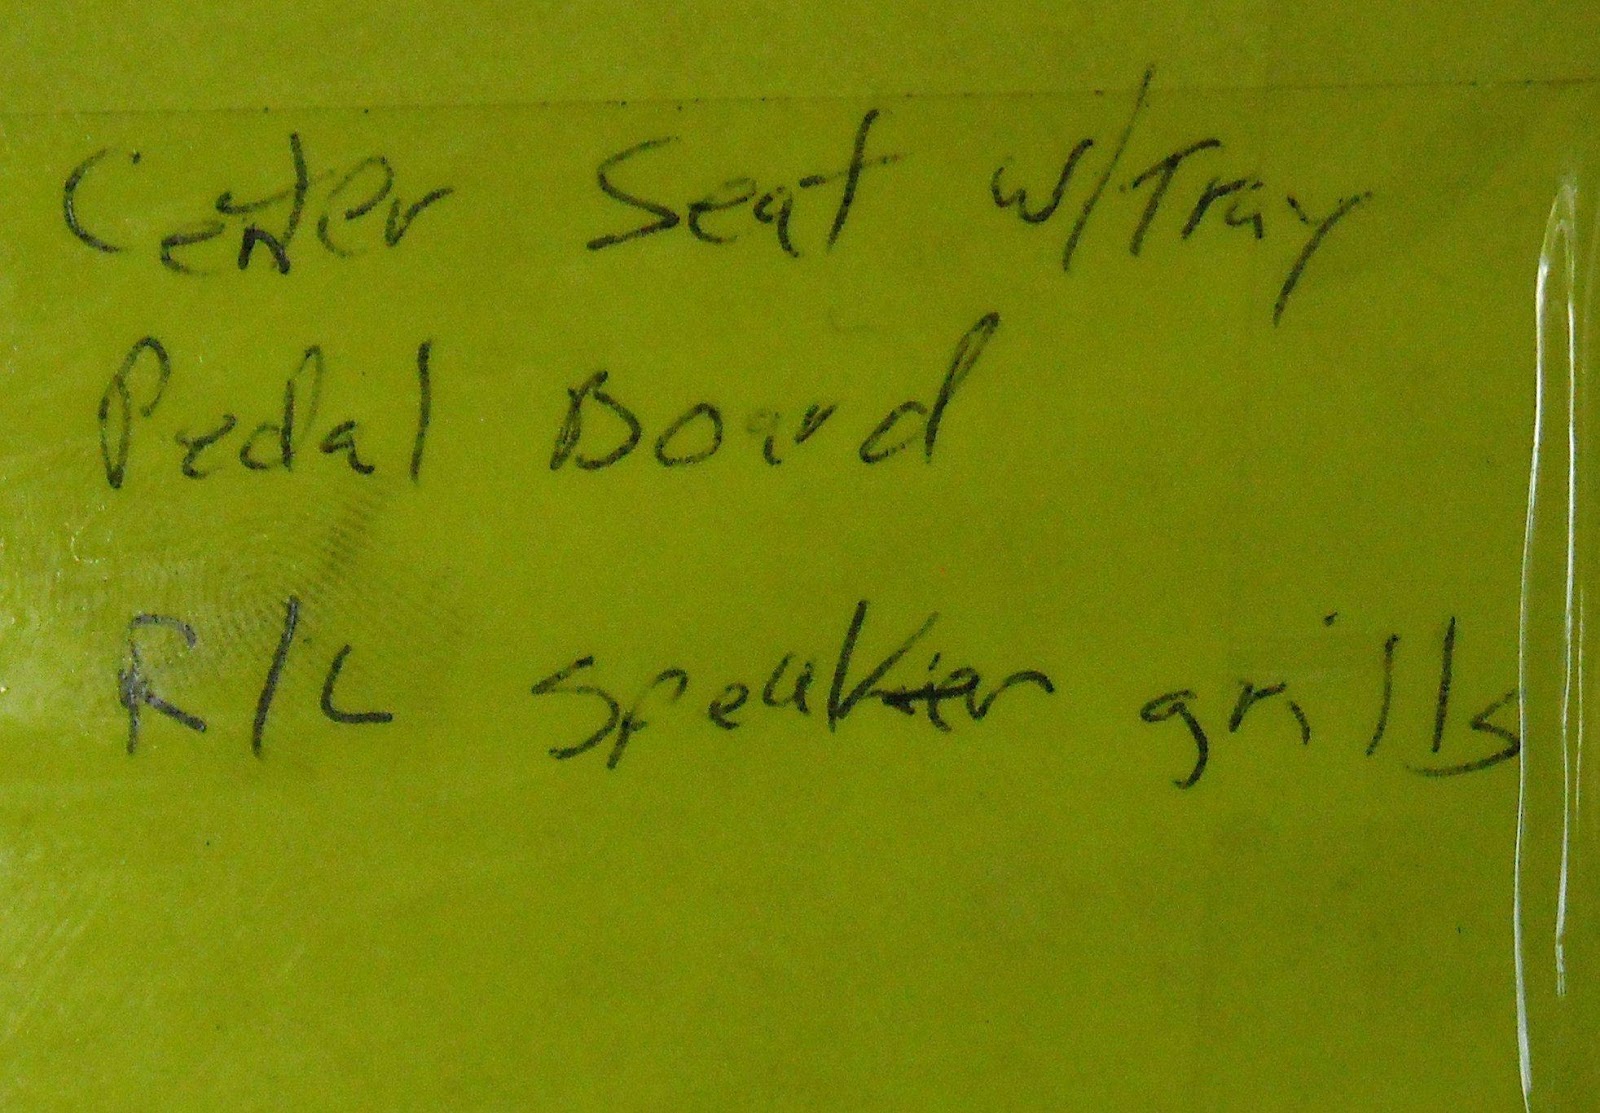 Center Seat w/Tray
Pedal Board
R/L speaker grills